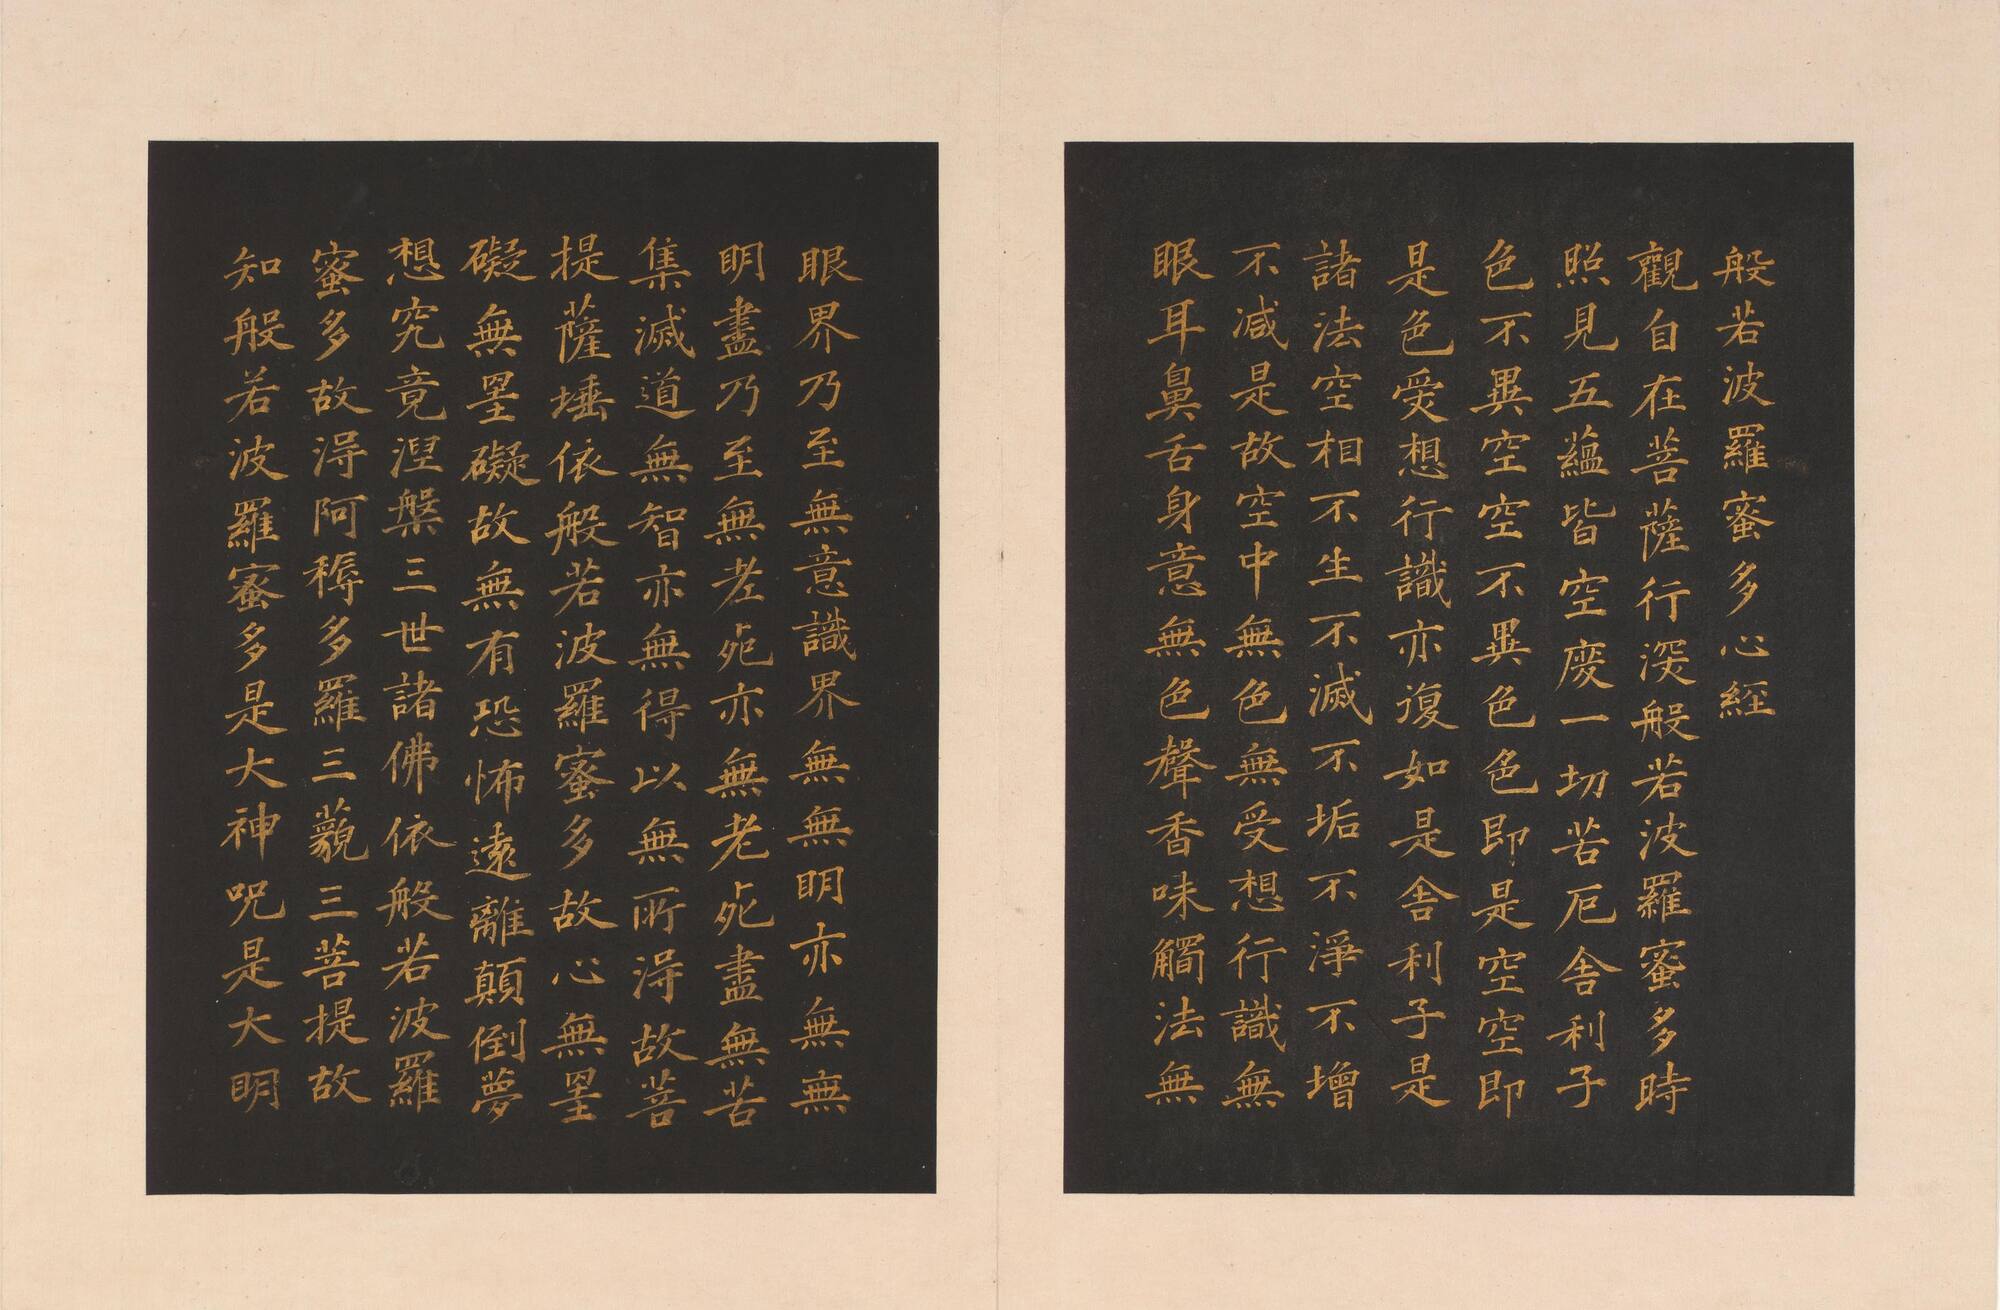 般若波羅蜜多心經
觀自在菩薩行深般若波羅蜜多時
照見五蘊皆空度一切苦厄舍利子
色不異空空不異色色即是空空即
是色受想行識亦復如是舍利子是
諸法空相不生不滅不垢不淨不增
不減是故空中無色無受想行識無
眼耳鼻舌身意無色聲香味觸法無
眼界乃至無意識界無無明亦無無
明盡乃至無老死亦無老死盡無苦
集滅道無智亦無得以無所得故菩
提薩埵依般若波羅蜜多故心無罣
礙無罣礙故無有恐怖遠離顛倒夢
想究竟涅槃三世諸佛依般若波羅
蜜多故得阿耨多羅三藐三菩提故
知般若波羅蜜多是大神咒是大明